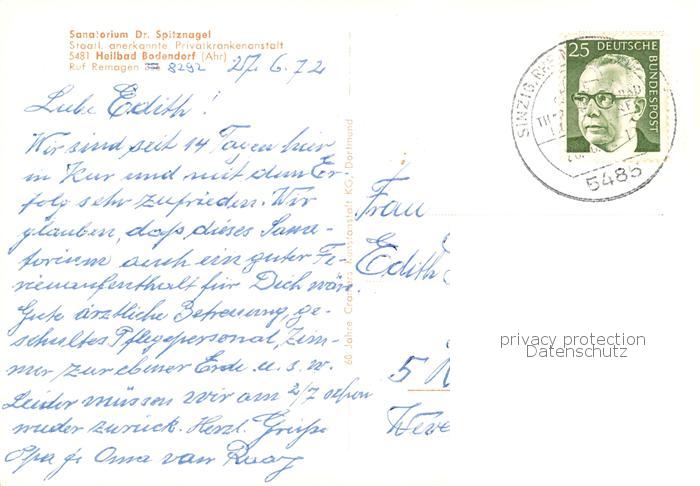 Sanatorium Dr. Spitznagel
Staatl. anerkannte Privatkrankenanstalt
5481 Heilbad Bodendorf (Ahr)
Ruf Remagen 8292
27. 6. 72
Liebe Edith!
Wir sind seit 14 Tagen hier
in Kur und mit dem Er-
folg sehr zufrieden. Wir
glauben, daß dieses Sana-
torium auch ein guter Fe-
rienaufenthalt für Dich wäre.
Gute ärztliche Betreuung, ge-
schultes Pflegepersonal, Zim-
mer zur ebener Erde u. s. w.
Leider müssen wir am 2/7 schon
wieder zurück. Herzl. Grüße
Opa & Oma van
60 Jahre Kunstanstalt KG, Dortmund
25 DEUTSCHE
BUNDESPOST
SINZIG, RHEIN
5485
Frau
Edith
5 K
privacy protection
Datenschutz